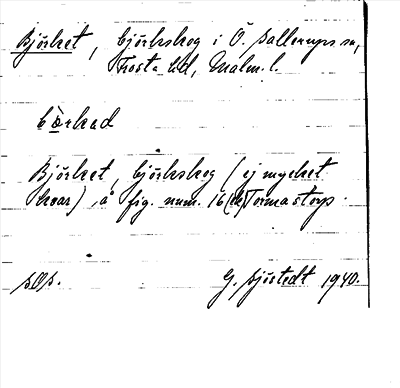 Björket, björkskog i Ö. Sallerups sn,
Frosta hd, Malm. l.
bö̀rkad
Björket, björkskog (ej mycket
kvar), å fig. num. 16 Tormastorp.
SOS.
G. Sjöstedt 1940.